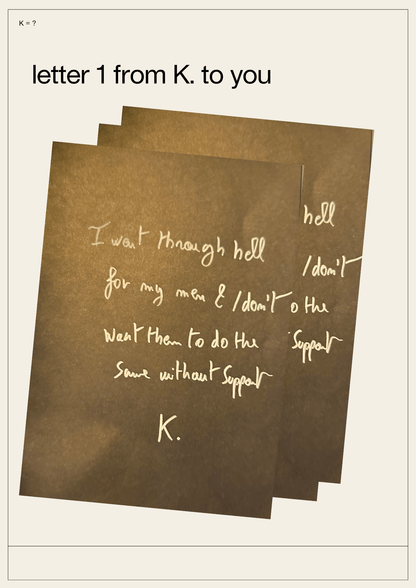 K = ?
letter 1 from K. to you
I went through hell
for my men & I don't
want them to do the
same without support
K.
hell
I don't
o the
support